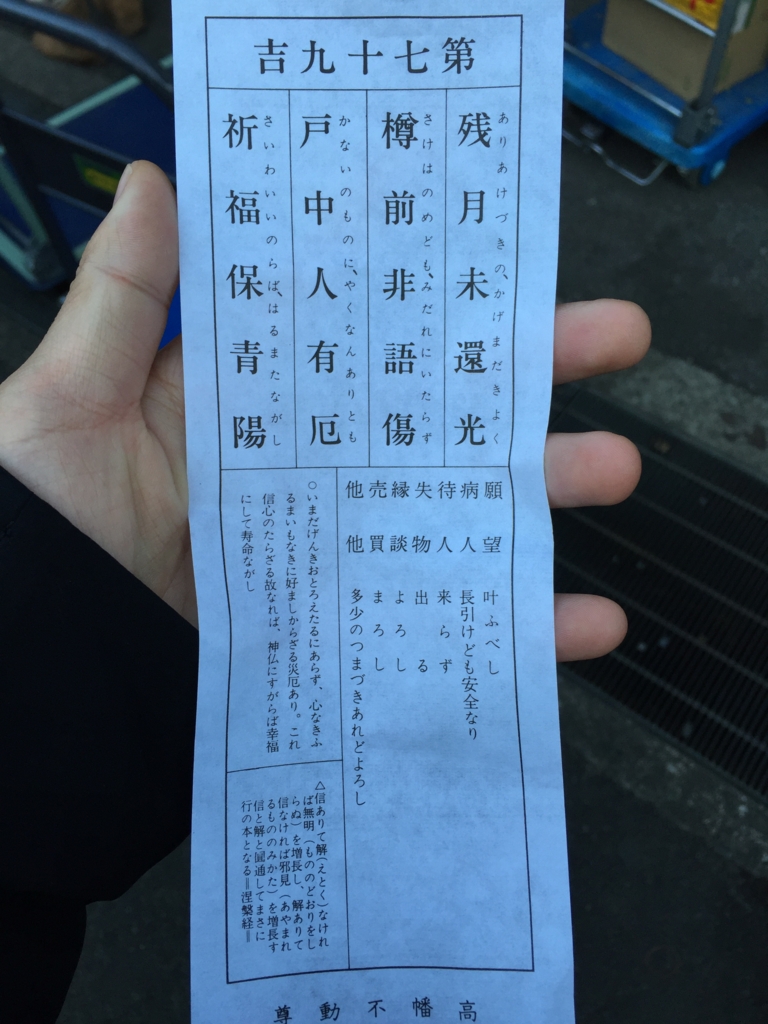 第七十九吉
残月未還光
ありあけづきの、かげまだきよく
樽前非語傷
さけはのめども、みだれにいたらず
戸中人有厄
かないのものに、やくなんありとも
祈福保青陽
さいわいいのらば、はるまたながし
願望 叶ふべし
病人 長引けども安全なり
待人 来らず
失物 出る
縁談 よろし
売買 まろし
他他 多少のつまづきあれどよろし
○いまだげんきおとろえたるにあらず、心なきふ
るまいもなきに好ましからざる災厄あり。これ
信心のたらざる故なれば、神仏にすがらば幸福
にして寿命ながし
△信ありて解(えとく)なけれ
ば無明(もののどおりをし
らぬ)を増長し、解ありて
信なければ邪見(あやまれ
るもののみかた)を増長す
信と解と圓通してまさに
行の本となる＝涅槃経＝
高幡不動尊